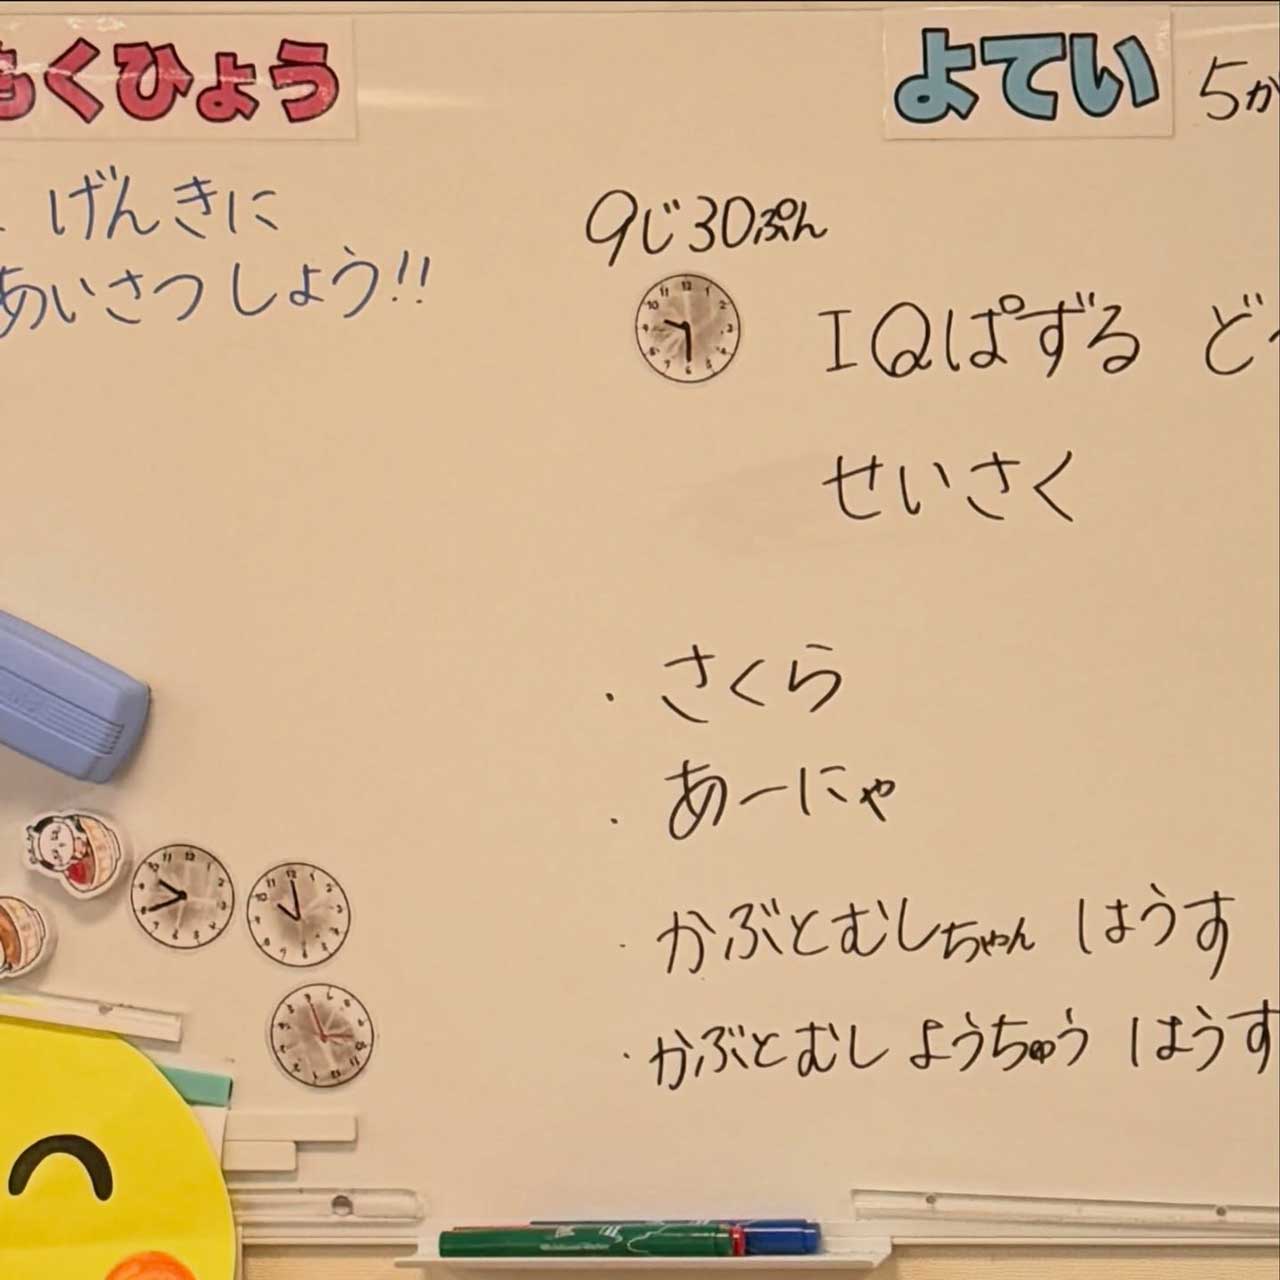 もくひょう
げんきに
あいさつしょう!!
よてい 5か
9じ30ぷん
IQぱずる ど
せいさく
・さくら
・あーにゃ
・かぶとむしちゃん はうす
・かぶとむし ようちゅう はうす